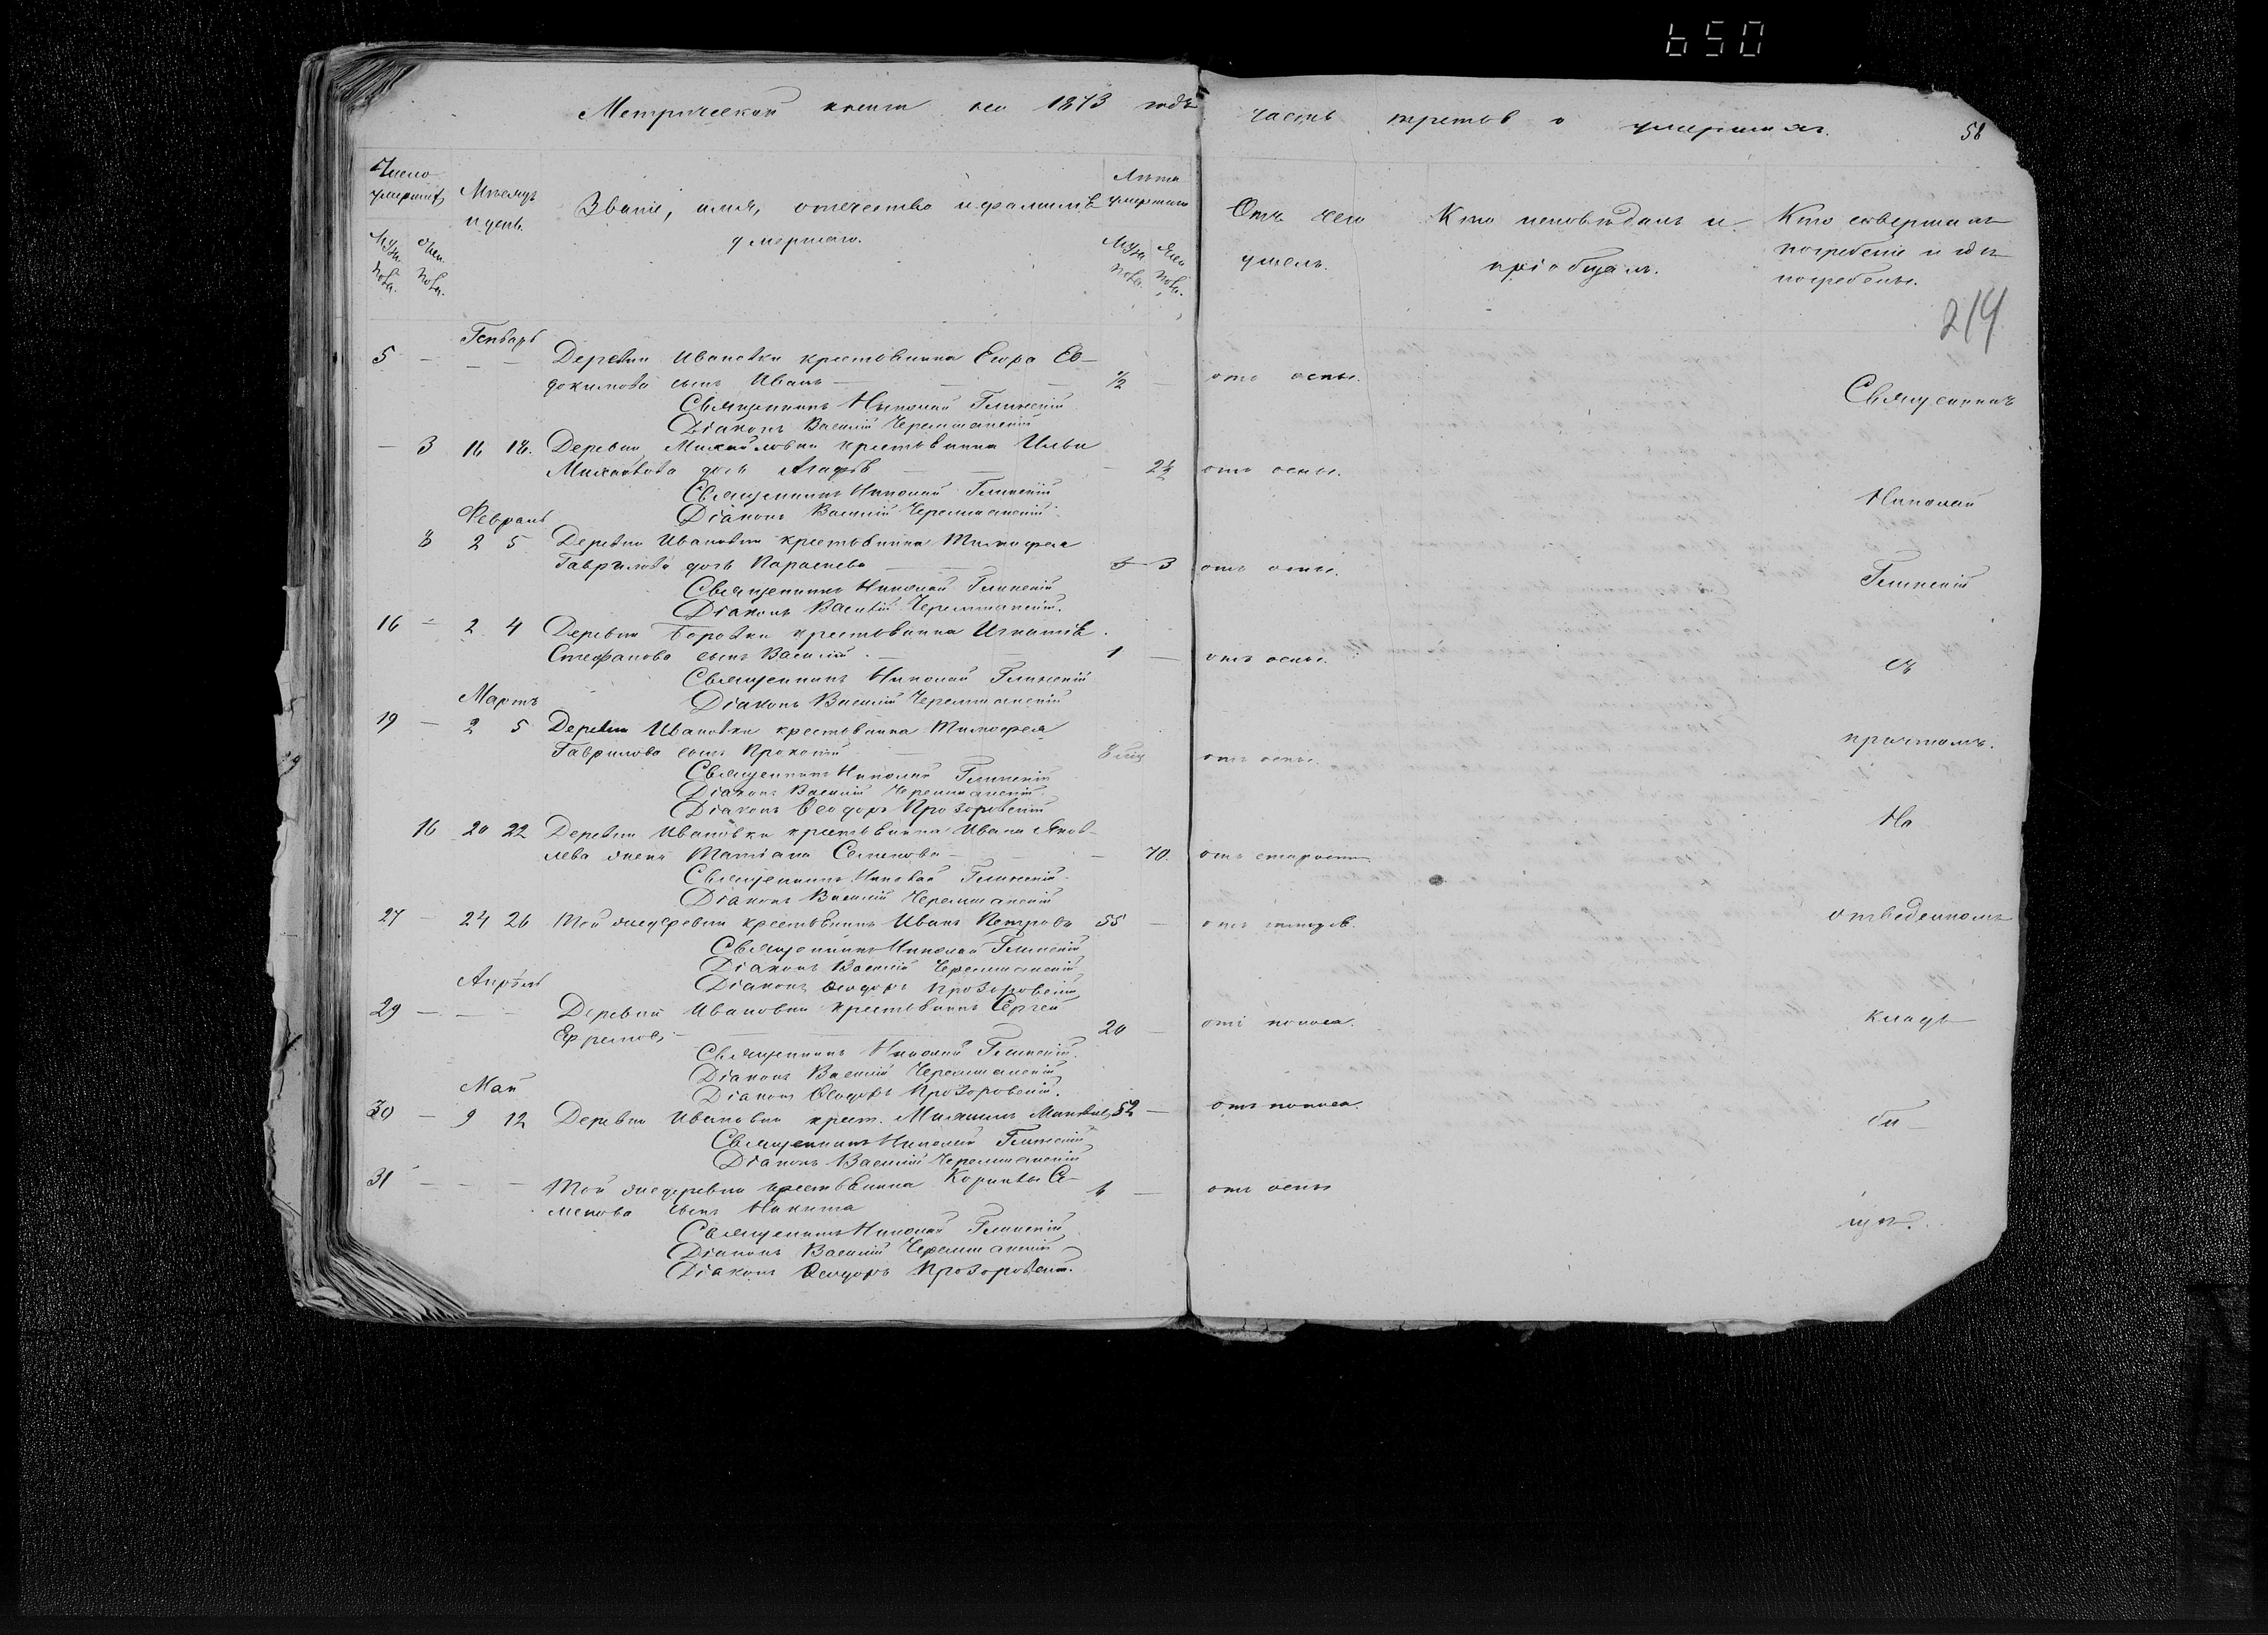 650
Метрической книги на 1873 годъ
часть третья о умершихъ.
58
Число умершихъ
Муж. пола.
Жен. пола.
Мѣсяцъ и день.
Званіе, имя, отчество и фамилія умершаго.
Лѣта умершаго
Муж. пола.
Жен. пола.
Отъ чего умеръ.
Кто исповѣдалъ и пріобщалъ.
Кто совершалъ погребеніе и гдѣ погребены.
214
Генварь
5 — — — Деревни Ивановки крестьянина Егора Ев-
докимова сынъ Иванъ — — — 1/2 — отъ оспы.
Священникъ Николай Глинскій
Діаконъ Василій Черемшанскій
— 3 16 18. Деревни Михайловки крестьянина Ильи
дочь Агафья — — — 2 1/2 отъ оспы.
Священникъ Николай Глинскій
Діаконъ Василій Черемшанскій
Февраль
8 2 5 Деревни Ивановки крестьянина Тимофея
Гаврилова дочь Параскева — — 3 отъ оспы.
Священникъ Николай Глинскій
Діаконъ Василій Черемшанскій.
16 — 2 4 Деревни Боровки крестьянина Игнатія
Стефанова сынъ Василій — — 1 — отъ оспы.
Священникъ Николай Глинскій
Діаконъ Василій Черемшанскій
Мартъ
19 — 2 5 Деревни Ивановки крестьянина Тимофея
Гаврилова сынъ Прокопій — 8 мц отъ оспы.
Священникъ Николай Глинскій
Діаконъ Василій Черемшанскій
Діаконъ Ѳеодоръ Прозоровскій
16 20 22 Деревни Ивановки крестьянина Ивана Яков-
лева жена Татіана Семенова — — — 70. отъ старости
Священникъ Николай Глинскій
Діаконъ Василій Черемшанскій
27 — 24 26 Той же деревни крестьянинъ Иванъ Петровъ 55 — отъ
Священникъ Николай Глинскій
Діаконъ Василій Черемшанскій
Діаконъ Ѳеодоръ Прозоровскій
Апрѣль
29 — — — Деревни Ивановки крестьянинъ Сергей
Ефремовъ — — 20 — отъ поноса.
Священникъ Николай Глинскій
Діаконъ Василій Черемшанскій
Діаконъ Ѳеодоръ Прозоровскій.
Май
30 — 9 12 Деревни Ивановки крест. 52 — отъ поноса.
Священникъ Николай Глинскій
Діаконъ Василій Черемшанскій
31 — — — Той же деревни крестьянина Корнилы Се-
менова сынъ Никита 1 — отъ оспы
Священникъ Николай Глинскій
Діаконъ Василій Черемшанскій
Діаконъ Ѳеодоръ Прозоровскій.
Священникъ
Николай
Глинскій
съ
причтомъ.
На
отведенномъ
кладъ
би—
щѣ.